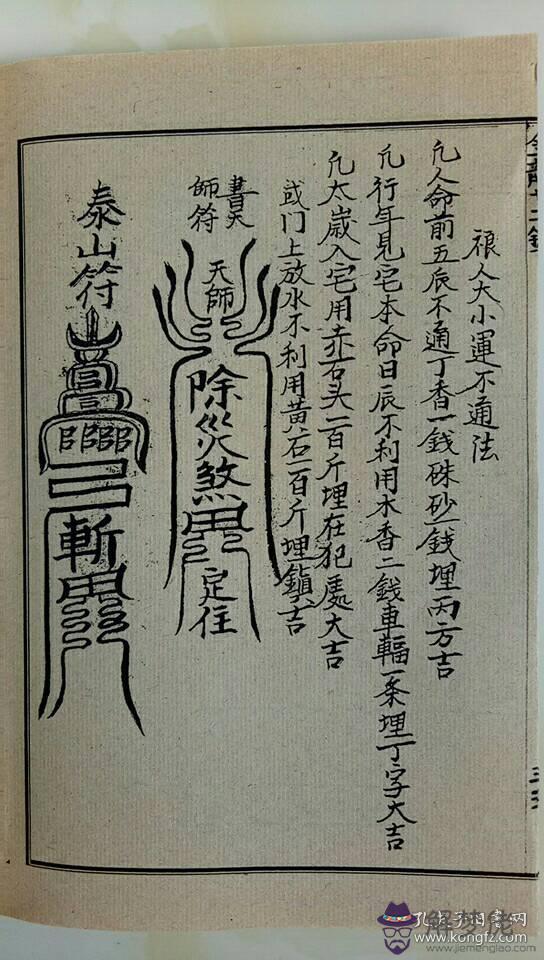 禳人大小運不通法
凢人命前五辰不通丁香一錢硃砂一錢埋丙方吉
凢行年見宅本命日辰不利用木香二錢車輻一条埋丁字大吉
凢太嵗入宅用赤石头一百斤埋在犯處大吉
或门上放水不利用黄石一百斤埋鎮吉
書天
師符
天師
除災煞
定住
泰山符
斬
孔夫子旧书网
www.kongfz.com
解梦佬
www.jiemenglao.com